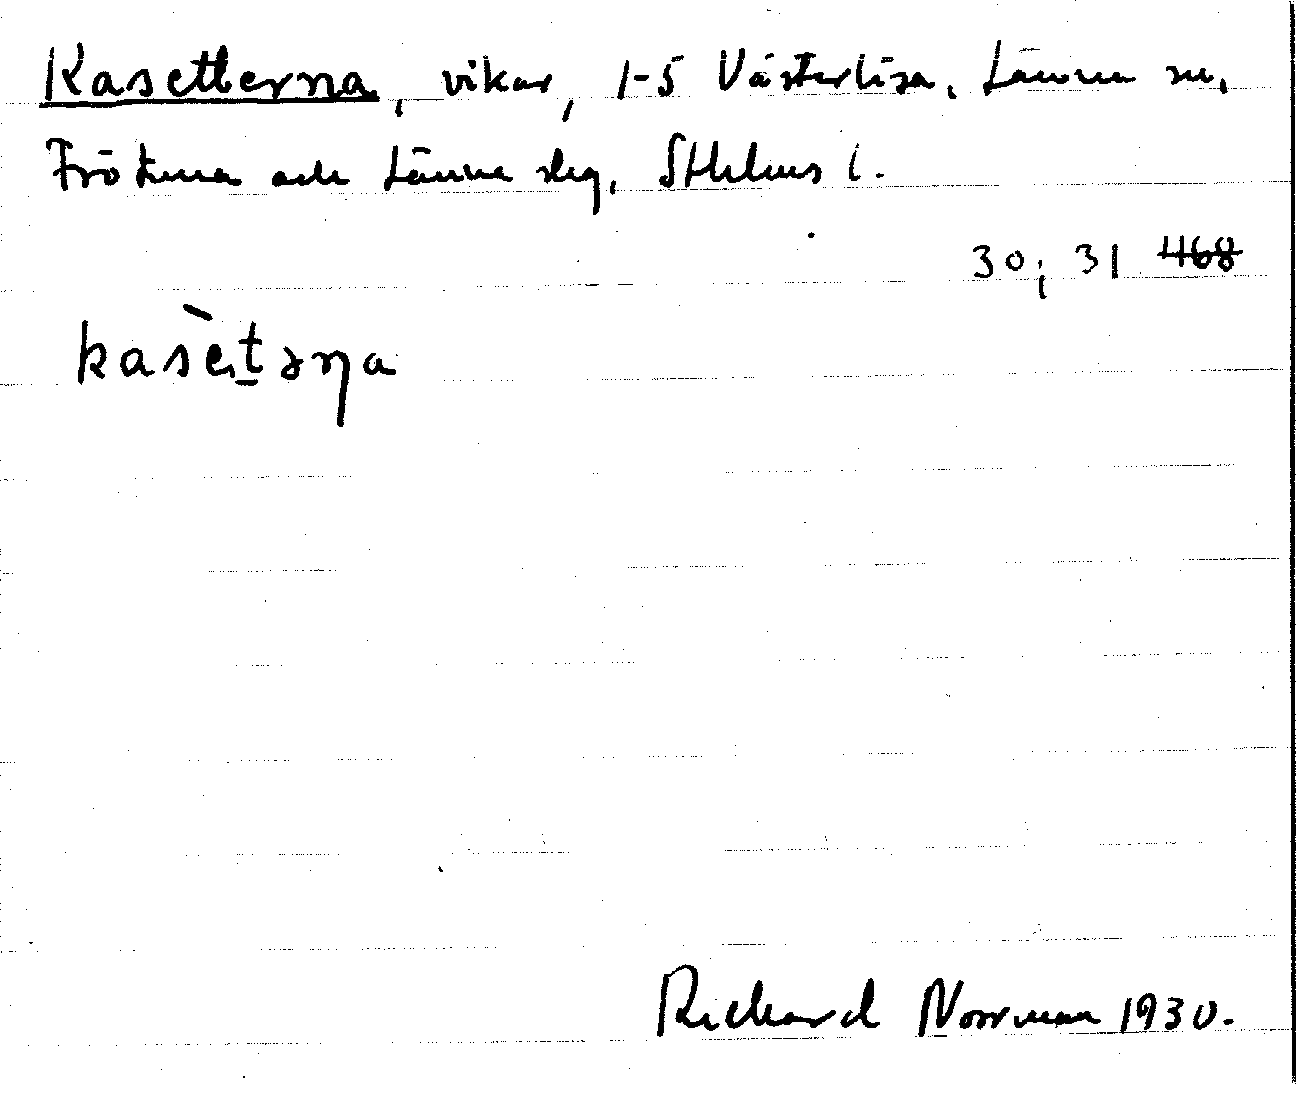 Kasetterna, vikar, 1-5 Västerlisa, Länna sn,
Frötuna och Länna slg, Sthlms l.
30; 31 468
kasètəɳa
Richard Norrman 1930.